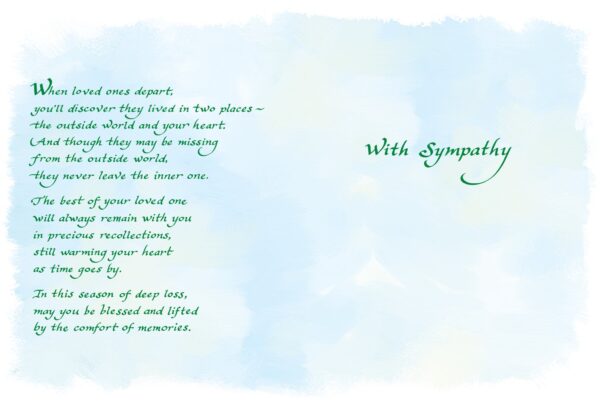 When loved ones depart,
you'll discover they lived in two places ~
the outside world and your heart.
And though they may be missing
from the outside world,
they never leave the inner one.
The best of your loved one
will always remain with you
in precious recollections,
still warming your heart
as time goes by.
In this season of deep loss,
may you be blessed and lifted
by the comfort of memories.
With Sympathy